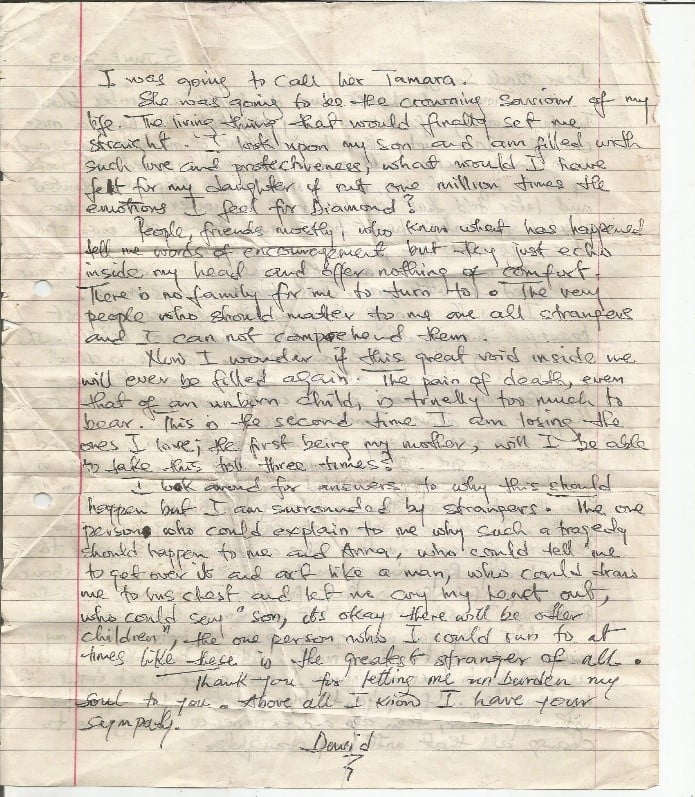 I was going to call her Tamara.
She was going to be the crowning saviour of my
life. The living thing that would finally set me
straight. I look upon my son and am filled with
such love and protectiveness, what would I have
felt for my daughter if not one million times the
emotions I feel for Diamond?
People, friends mostly, who know what has happened
tell me words of encouragement but they just echo
inside my head and offer nothing of comfort.
There is no family for me to turn to. The very
people who should matter to me are all strangers
and I can not comprehend them.
Now I wonder if this great void inside me
will ever be filled again. The pain of death, even
that of an unborn child, is truelly too much to
bear. This is the second time I am losing the
ones I love; the first being my mother, will I be able
to take this toll three times?
I look around for answers to why this should
happen but I am surrounded by strangers. The one
person who could explain to me why such a tragedy
should happen to me and Anna, who could tell me
to get over it and act like a man, who could draw
me to his chest and let me cry my heart out,
who could say "son, its okay there will be other
children", the one person who I could run to at
times like these is the greatest stranger of all.
Thank you for letting me unburden my
soul to you. Above all I know I have your
sympathy.
David